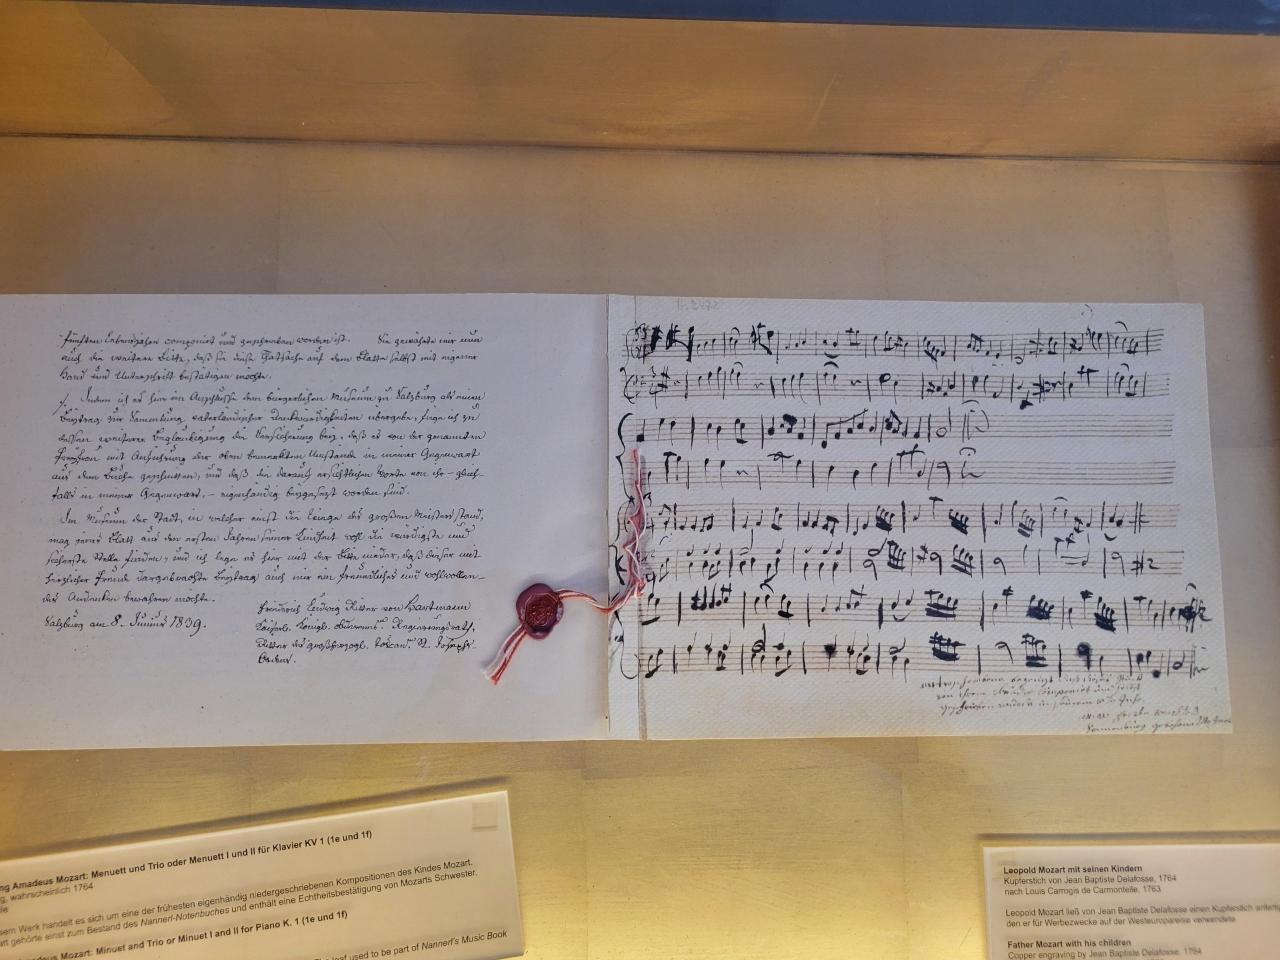 fünften Lebensjahre componirt und geschrieben worden ist. Sie gewährte mir nun
auch die weitere Bitte, daß sie diese Thatsache auf dem Blatte selbst mit eigener
Hand und Unterschrift bestätigen möchte.
Indem ich es hier im Anschlusse dem bürgerlichen Museum zu Salzburg als einen
Beytrag zur Sammlung vaterländischer Denkwürdigkeiten übergebe, füge ich zu
dessen weiterer Beglaubigung die Versicherung bey, daß es von der genannten
Freyfrau mit Anführung der oben bemerkten Umstände in meiner Gegenwart
aus dem Buche geschnitten, und daß die darauf ersichtlichen Worte von ihr – gleich-
falls in meiner Gegenwart, – eigenhändig beygesetzt worden sind.
Im Museum der Stadt, in welcher einst die Wiege des großen Meisters stand,
mag jenes Blatt aus den ersten Jahren seiner Kindheit wohl die würdigste und
sicherste Stelle finden, und ich lege es hier mit der Bitte nieder, daß dieser mit
herzlicher Freude dargebrachte Beytrag auch mir ein freundliches und wohlwollen-
des Andenken bewahren möchte.
Salzburg am 8. Junius 1839.
Friedrich Ludwig Ritter von Hartmann
Ritter des großherzogl. toscan. St. Josephs-
Ordens.
endesgefertigte bezeugt, daß dieses Stück
von ihrem Bruder componirt und selbst
geschrieben wurde in seinem
ng Amadeus Mozart: Menuett und Trio oder Menuett I und II für Klavier KV 1 (1e und 1f)
g, wahrscheinlich 1764
sem Werk handelt es sich um eine der frühesten eigenhändig niedergeschriebenen Kompositionen des Kindes Mozart.
att gehörte einst zum Bestand des Nannerl-Notenbuches und enthält eine Echtheitsbestätigung von Mozarts Schwester.
madeus Mozart: Minuet and Trio or Minuet I and II for Piano K. 1 (1e und 1f)
leaf used to be part of Nannerl's Music Book
Leopold Mozart mit seinen Kindern
Kupferstich von Jean Baptiste Delafosse, 1764
nach Louis Carrogis de Carmontelle, 1763
Leopold Mozart ließ von Jean Baptiste Delafosse einen Kupferstich anfertig
den er für Werbezwecke auf der Westeuropareise verwendete.
Father Mozart with his children
Copper engraving by Jean Baptiste Delafosse, 1764